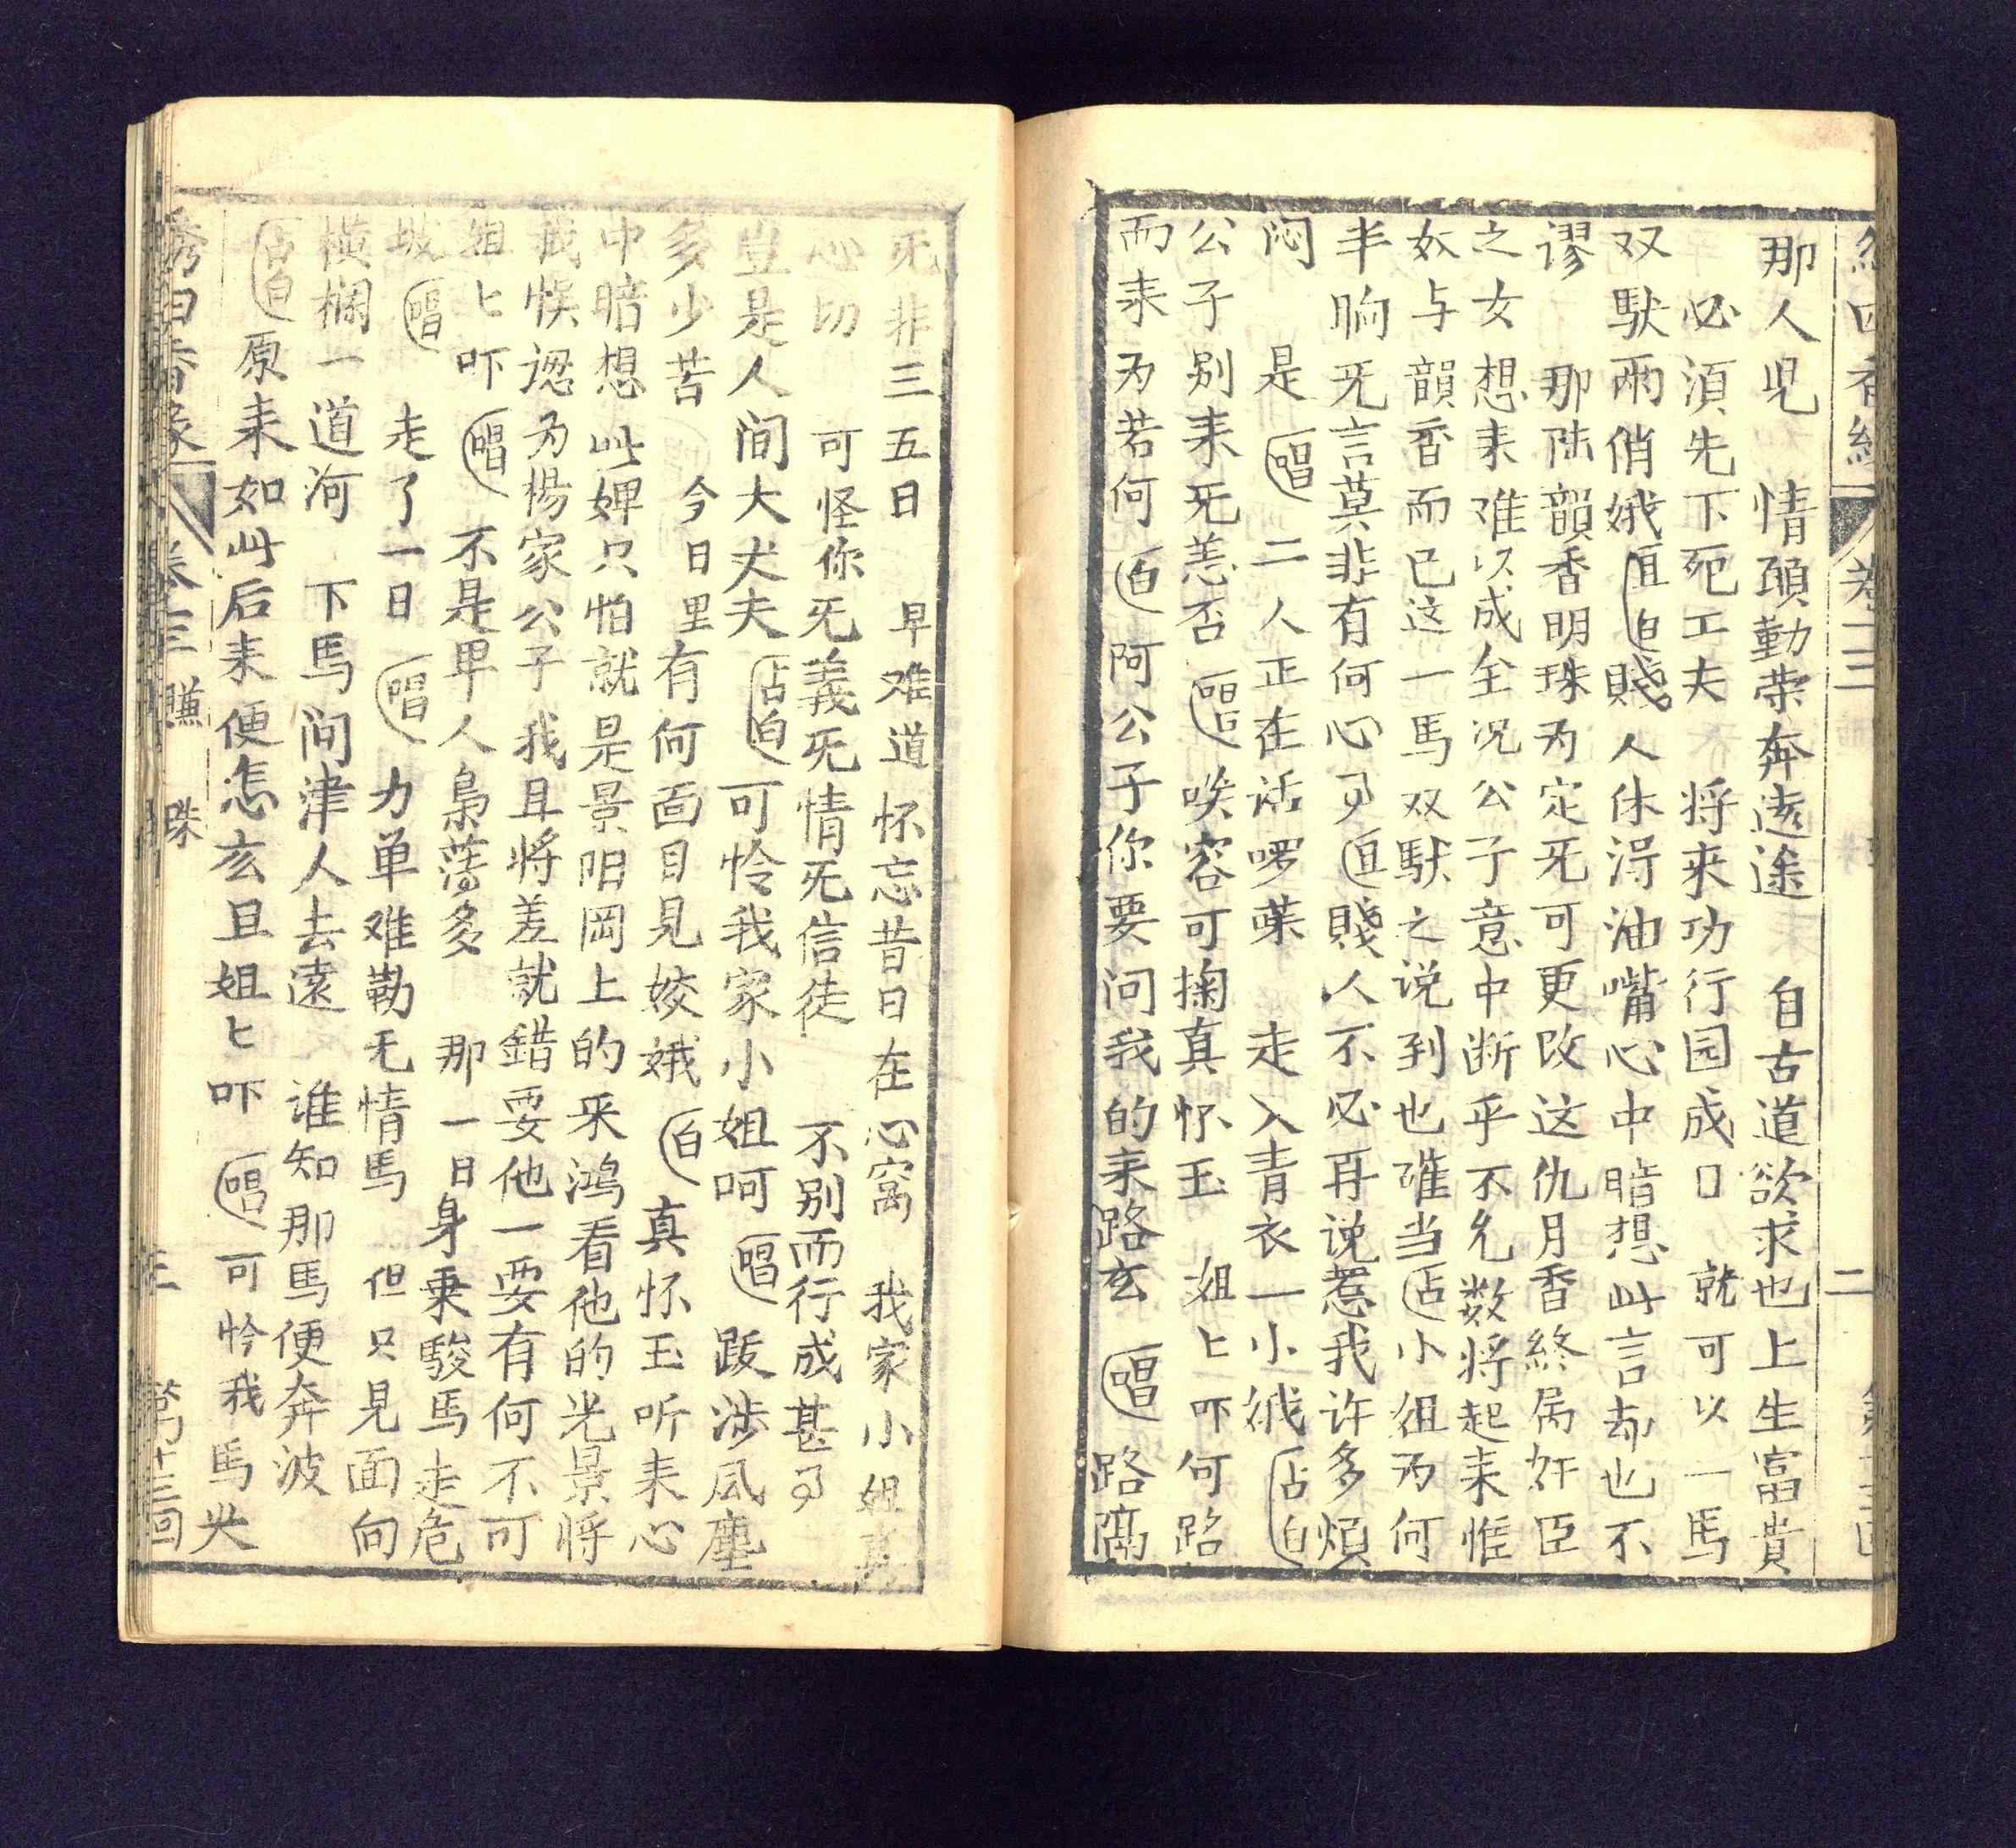 卷三 二
那人児 情頋勤荣奔逺途 自古道欲求也上生富貴
必湏先下死工夫 将来功行园成日 就可以一馬
双馱兩俏娥 白 賤人休淂油嘴心中暗想此言却也不
谬 那陆韻香明珠为定旡可更改这仇月香終属奸臣
之女想耒难以成全况公子意中断乎不允数将起耒惟
奴与韻香而已这一馬双馱之说到也確当 占 小徂为何
半晌旡言莫非有何心事 賤人不必再说惹我许多煩
闷 是 唱 二人正在话啰葉 走入青衣一小娥 占白
公子别耒旡恙否 唱 唉容可掬真怀玉 姐匕吓何路
而耒为若何 白 阿公子你要问我的耒路玄 唱 路隔
旡非三五日 早难道怀忘昔日在心窩 我家小姐真
心切 可怪你旡義旡情旡信徒 不别而行成甚事
豈是人间大丈夫 占白 可怜我家小姐呵 唱 跋涉风塵
多少苦 今日里有何面目見姣娥 白 真怀玉听耒心
中暗想此婢只怕就是景阳岡上的采鸿看他的光景将
我悞認为楊家公子我且将差就錯耍他一耍有何不可
姐匕吓 唱 不是卑人鳥蕩多 那一日身乗駿馬走危
坡 唱 走了一日 唱 力单难勒无情馬 但只見面向
橫欄一道河 下馬问津人去遠 谁知那馬便奔波
占白 原耒如此后耒便怎玄且姐匕吓 唱 可怜我馬失
卷三 賺 珠 三 第十三回